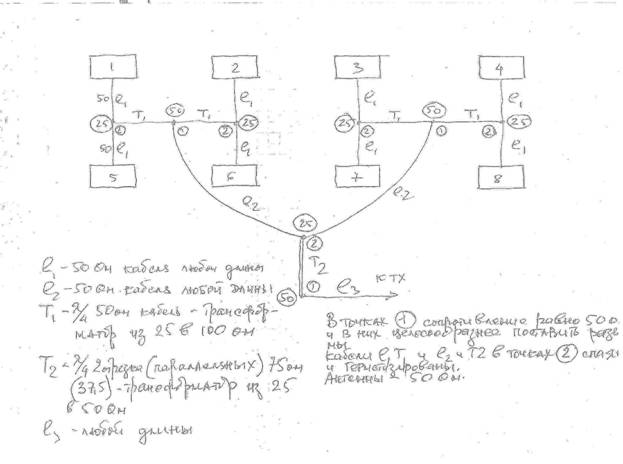 1 2 3 4
50 l₁ l₁ l₁ l₁
T₁ 50 T₁ T₁ 50 T₁
25 2 1 2 25 25 2 1 2 25
50 l₁ l₁ l₁ l₁
5 6 7 8
l₂ l₂
25
2
T₂
50 1 l₃ к TX
l₁ - 50 Ом кабель любой длины
l₂ - 50 Ом кабель любой длины
T₁ - λ/4 50 ом кабель - трансфор-
матор из 25 в 100 ом
T₂ - λ/4 2 отрезка (параллельных) 75 ом
(37,5) - трансформатор из 25
в 50 Ом
l₃ - любой длины
В точках 1 сопротивление равно 50 о.
и в них целесообразнее поставить разъ
мы.
кабели l₁ T₁ и l₂ и T2 в точках 2 спаян
и герметизированы.
Антенны 50 Ом.